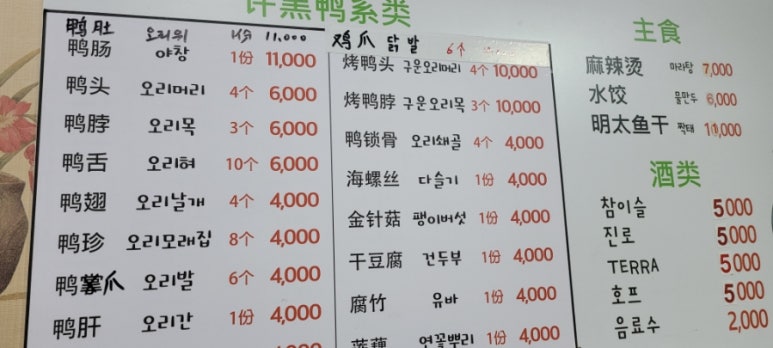 许黑鸭系类
鸭肚 오리위 1份 11,000
鸭肠 야창 1份 11,000
鸭头 오리머리 4个 6,000
鸭脖 오리목 3个 6,000
鸭舌 오리혀 10个 6,000
鸭翅 오리날개 4个 4,000
鸭珍 오리모래집 8个 4,000
鸭掌爪 오리발 6个 4,000
鸭肝 오리간 1份 4,000
鸡爪 닭발 6个
烤鸭头 구운오리머리 4个 10,000
烤鸭脖 구운오리목 3个 10,000
鸭锁骨 오리쇄골 4个 4,000
海螺丝 다슬기 1份 4,000
金针菇 팽이버섯 1份 4,000
干豆腐 건두부 1份 4,000
腐竹 유바 1份 4,000
莲藕 연꽃뿌리 1份 4,000
主食
麻辣烫 마라탕 7,000
水饺 물만두 6,000
明太鱼干 짝태
酒类
참이슬 5000
진로 5000
TERRA 5,000
호프 5000
음료수 2,000